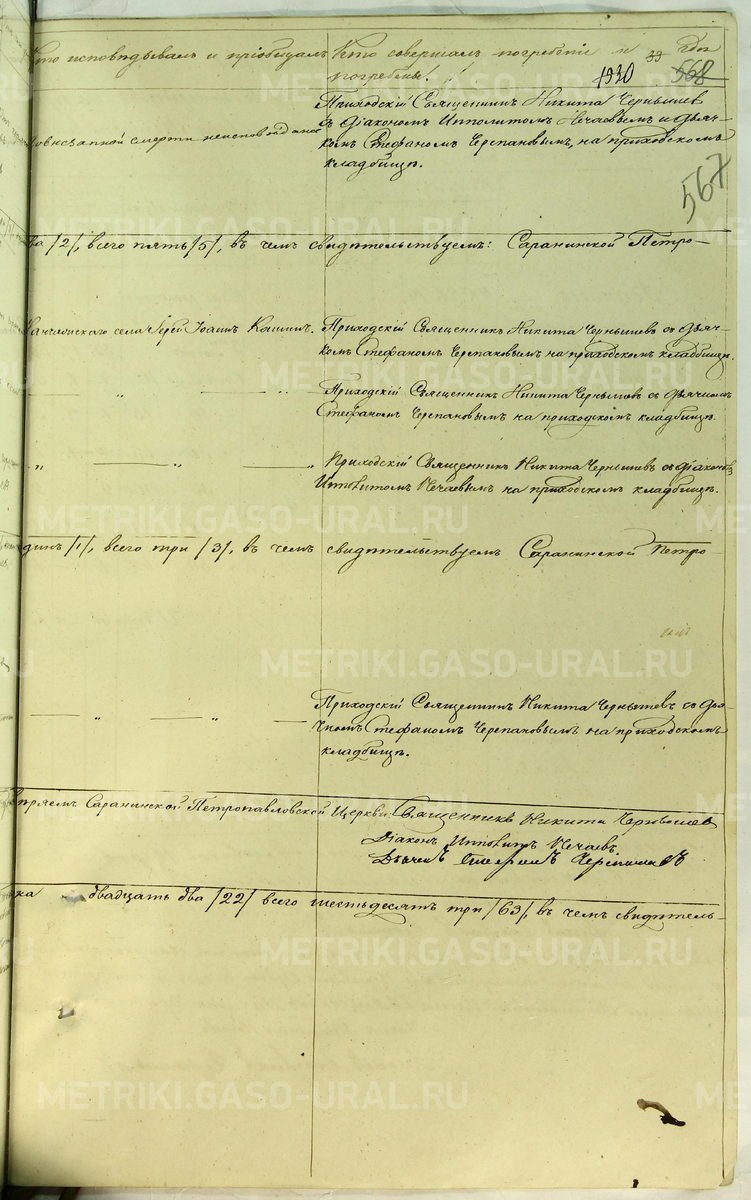 Кто исповѣдывалъ и пріобщалъ
Кто совершалъ погребеніе и гдѣ
погребены.
33
1930
568
567
Приходскій Священникъ Никита Чернышев
съ Діакономъ Ипполитомъ Нечаевымъ и дьяч-
комъ Стефаномъ Черепановымъ, на приходскомъ
кладбищѣ.
внезапной смерти неисповѣданъ
два /2/, всего пять /5/, въ чемъ свидѣтельствуемъ: Саранинской Петро-
села Іерей Іоаннъ Кашинъ.
Приходскій Священникъ Никита Чернышевъ съ дьяч-
комъ Стефаномъ Черепановымъ на приходскомъ кладбищѣ.
Приходскій Священникъ Никита Чернышевъ съ дьячкомъ
Стефаномъ Черепановымъ на приходскомъ кладбищѣ.
Приходскій Священникъ Никита Чернышевъ съ діакономъ
Ипполитомъ Нечаевымъ на приходскомъ кладбищѣ.
одинъ /1/, всего три /3/, въ чемъ свидѣтельствуемъ Саранинской Петро-
Приходскій Священникъ Никита Чернышевъ съ дья-
чкомъ Стефаномъ Черепановымъ на приходскомъ
кладбищѣ.
Саранинской Петропавловской Церкви: Священникъ Никита Чернышев
Діаконъ Ипполитъ Нечаевъ
Дьячекъ Стефанъ Черепановъ
двадцать два /22/ всего шестьдесятъ три /63/, въ чемъ свидѣтель-
METRIKI.GASO-URAL.RU